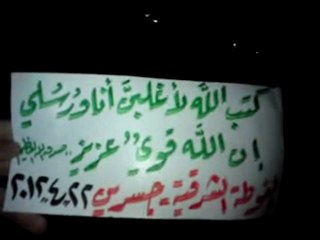 كتب الله لأغلبنَّ أنا ورسلي
إن الله قويٌ عزيز.. صدق الله العظيم
الغوطة الشرقية - جسرين ٢٠١٢.٤.٢٢